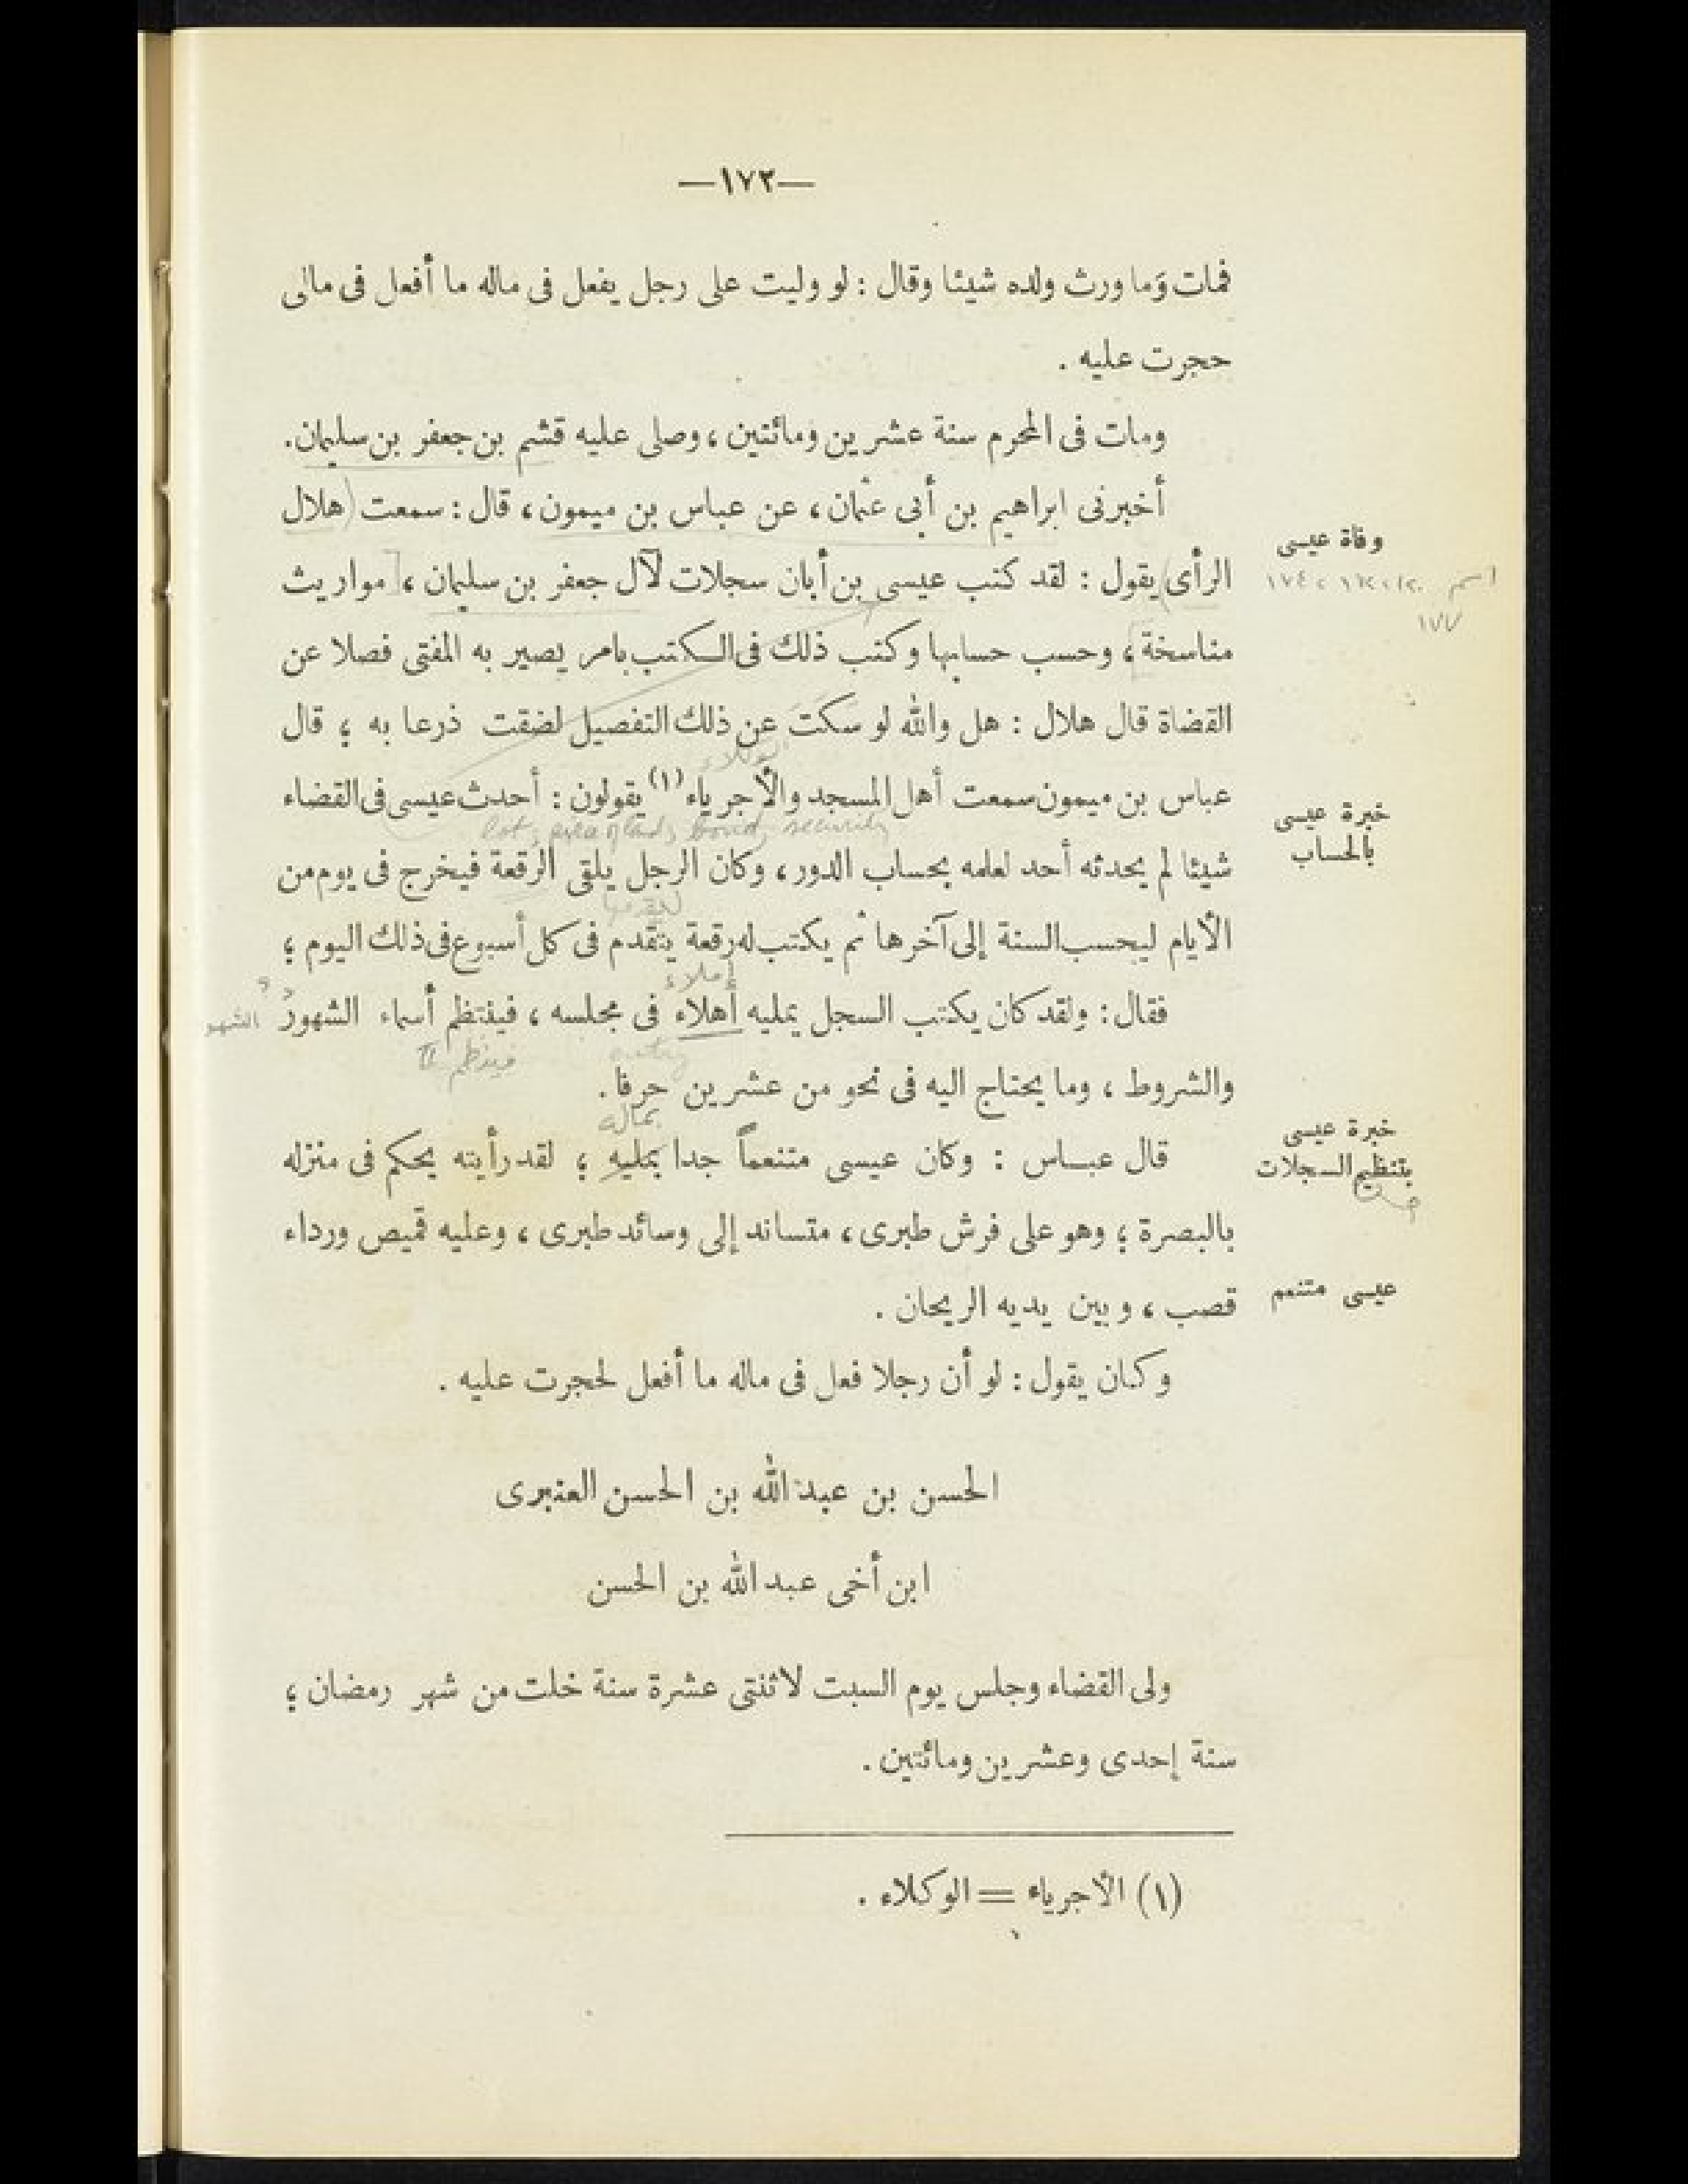 —١٧٢—
فمات وَما ورث ولده شيئا وقال : لو وليت على رجل يفعل فى ماله ما أفعل فى مالى
حجرت عليه .
ومات فى المحرم سنة عشرين ومائتين ، وصلى عليه قشم بن جعفر بن سليمان .
أخبرنى ابراهيم بن أبى عثمان ، عن عباس بن ميمون ، قال : سمعت (هلال
وفاة عيسى
الرأى) يقول : لقد كتب عيسى بن أبان سجلات لآل جعفر بن سليمان ، [مواريث
١٧٧
مناسخة] ، وحسب حسابها وكتب ذلك فى الكتب بامر يصير به المفتى فصلا عن
القضاة قال هلال : هل والله لو سكتَ عن ذلك التفصيل لضقت ذرعا به ؛ قال
الوكلاء
عباس بن ميمون سمعت أهل المسجد والأجرياء (١) يقولون : أحدث عيسى فى القضاء
خبرة عيسى
بالحساب
lot, area of land, bond, security
شيئا لم يحدثه أحد لعلمه بحساب الدور ، وكان الرجل يلقى الرقعة فيخرج فى يوم من
الأيام ليحسب السنة إلى آخرها ثم يكتب له رقعة يتقدم فى كل أسبوع فى ذلك اليوم ؛
إملاء
فقال : ولقد كان يكتب السجل يمليه أهلاء فى مجلسه ، فينتظم أسماء الشهور
الشهو
فينظم II
entry
والشروط ، وما يحتاج اليه فى نحو من عشرين حرفا .
خبرة عيسى
بتنظيم السجلات
بماله
قال عباس : وكان عيسى متنعماً جدا بمليه ؛ لقد رأيته يحكم فى منزله
بالبصرة ؛ وهو على فرش طبرى ، متساند إلى وسائد طبرى ، وعليه قميص ورداء
عيسى متنعم
قصب ، وبين يديه الريحان .
وكان يقول : لو أن رجلا فعل فى ماله ما أفعل لحجرت عليه .
الحسن بن عبد الله بن الحسن العنبرى
ابن أخى عبد الله بن الحسن
ولى القضاء وجلس يوم السبت لاثنتى عشرة سنة خلت من شهر رمضان ؛
سنة إحدى وعشرين ومائتين .
(١) الأجرياء = الوكلاء .